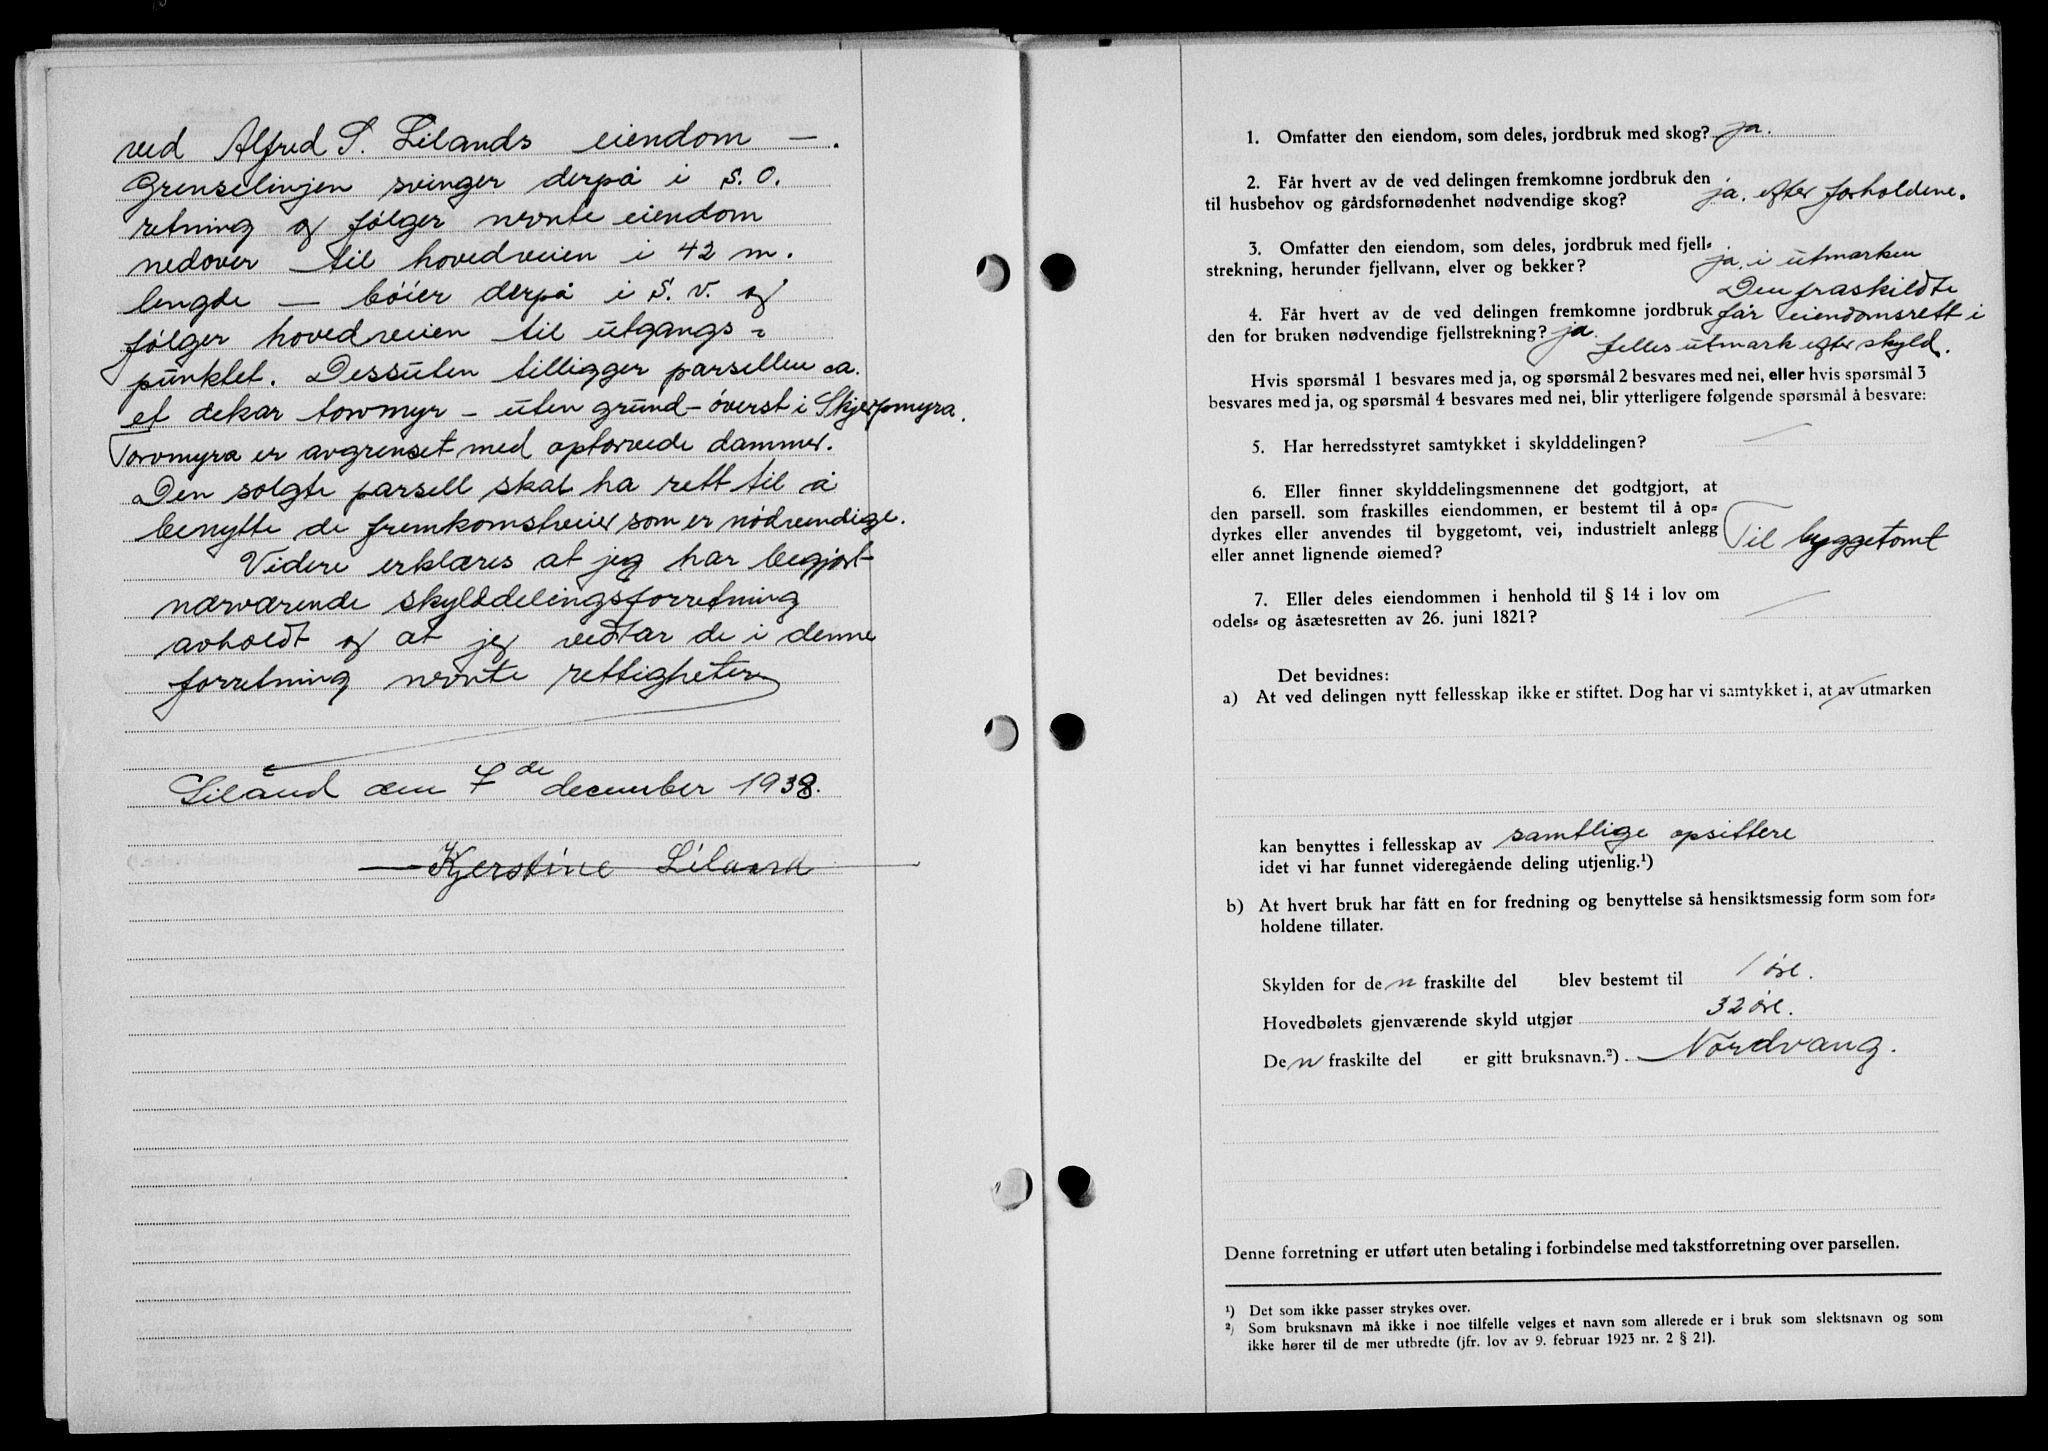 ved Alfred S. Lilands eiendom —.
Grenselinjen svinger derpå i S.O.
retning og følger nevnte eiendom
nedover til hovedveien i 42 m.
lengde — bøier derpå i S.V. og
følger hovedveien til utgangs-
punktet. Dessuten tilligger parsellen ca.
et dekar torvmyr - uten grund - øverst i Skjerpmyra.
Torvmyra er avgrenset med optorvede dammer.
Den solgte parsell skal ha rett til å
benytte de fremkomstveier som er nødvendige.
Videre erklæres at jeg har begjært
nærværende skylddelingsforretning
avholdt og at jeg vedtar de i denne
forretning nevnte rettigheter
Liland den 7de december 1938.
Kjerstine Liland
1. Omfatter den eiendom, som deles, jordbruk med skog? ja.
2. Får hvert av de ved delingen fremkomne jordbruk den
til husbehov og gårdsfornødenhet nødvendige skog? ja. efter forholdene.
3. Omfatter den eiendom, som deles, jordbruk med fjell-
strekning, herunder fjellvann, elver og bekker? ja, i utmarken
Den fraskildte
4. Får hvert av de ved delingen fremkomne jordbruk får eiendomsrett i
den for bruken nødvendige fjellstrekning? ja. felles utmark efter skyld.
Hvis spørsmål 1 besvares med ja, og spørsmål 2 besvares med nei, eller hvis spørsmål 3
besvares med ja, og spørsmål 4 besvares med nei, blir ytterligere følgende spørsmål å besvare:
5. Har herredsstyret samtykket i skylddelingen? —
6. Eller finner skylddelingsmennene det godtgjort, at
den parsell. som fraskilles eiendommen, er bestemt til å op-
dyrkes eller anvendes til byggetomt, vei, industrielt anlegg
eller annet lignende øiemed? Til byggetomt
7. Eller deles eiendommen i henhold til § 14 i lov om
odels- og åsætesretten av 26. juni 1821? —
Det bevidnes:
a) At ved delingen nytt fellesskap ikke er stiftet. Dog har vi samtykket i, at av utmarken
kan benyttes i fellesskap av samtlige opsittere
idet vi har funnet videregående deling utjenlig.¹)
b) At hvert bruk har fått en for fredning og benyttelse så hensiktsmessig form som for-
holdene tillater.
Skylden for den fraskilte del blev bestemt til 1 øre.
Hovedbølets gjenværende skyld utgjør 32 øre.
Den fraskilte del er gitt bruksnavn.²) Nordvang.
Denne forretning er utført uten betaling i forbindelse med takstforretning over parsellen.
¹) Det som ikke passer strykes over.
²) Som bruksnavn må ikke i noe tilfelle velges et navn som allerede er i bruk som slektsnavn og som
ikke hører til de mer utbredte (jfr. lov av 9. februar 1923 nr. 2 § 21).